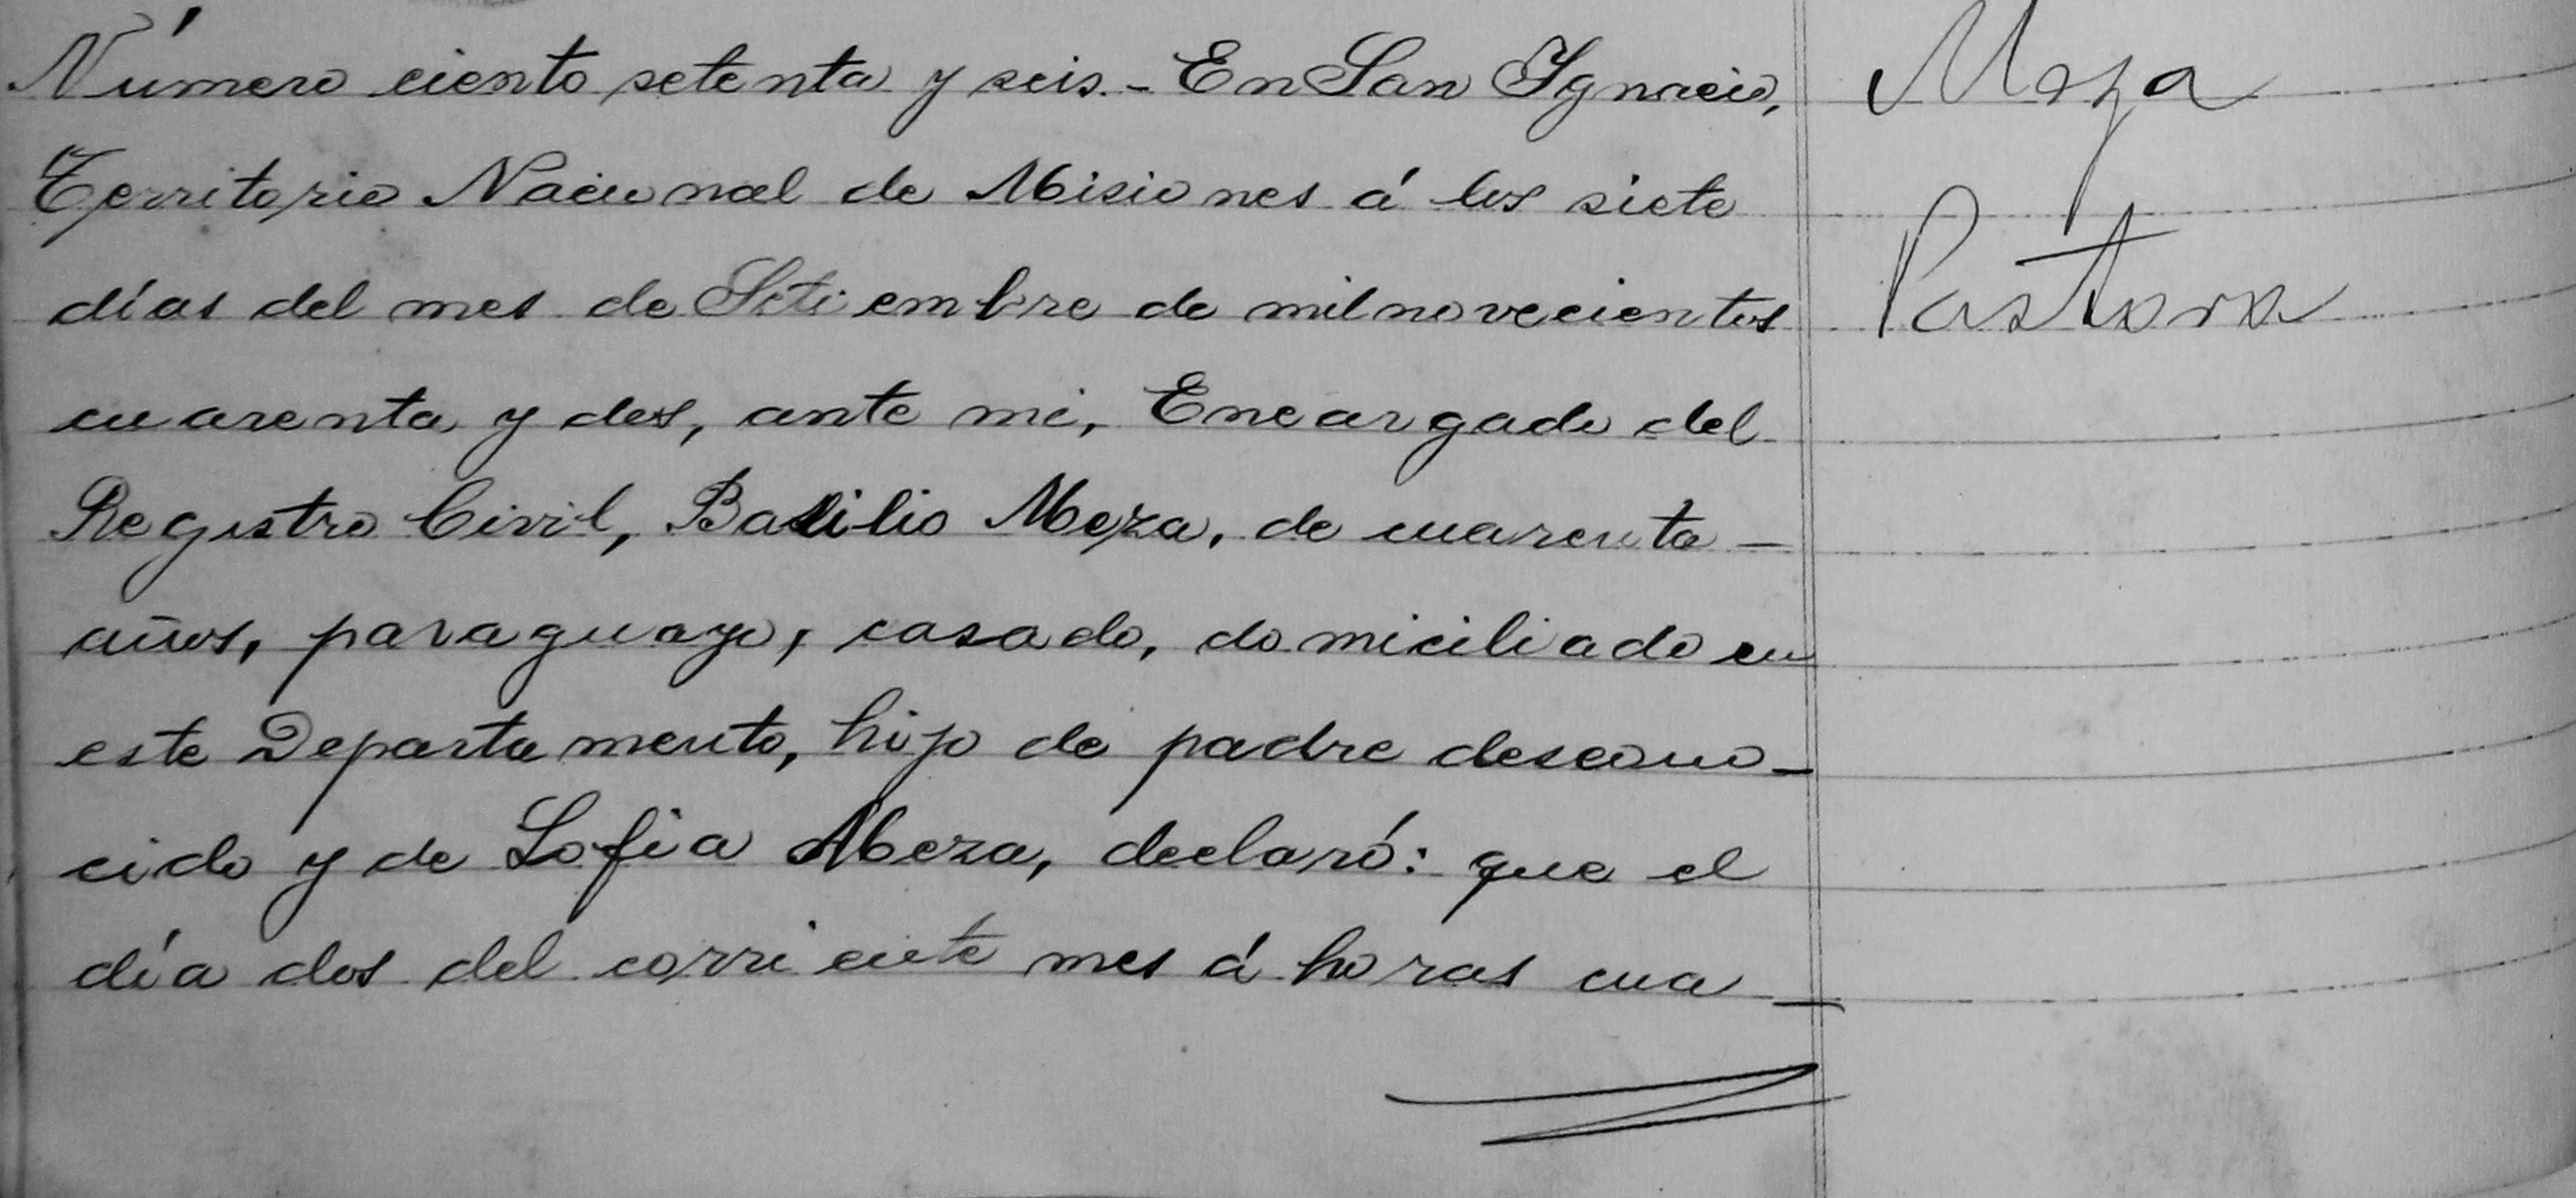 Número ciento setenta y seis.- En San Ygnacio,
Territorio Nacional de Misiones á los siete
días del mes de Setiembre de mil novecientos
cuarenta y dos, ante mi, Encargado del
Registro Civil, Basilio Meza, de cuarenta -
años, paraguayo, casado, domiciliado en
este Departamento, hijo de padre descono-
cido y de Sofia Meza, declaró: que el
día dos del corriente mes á horas cua-
Meza
Pastora